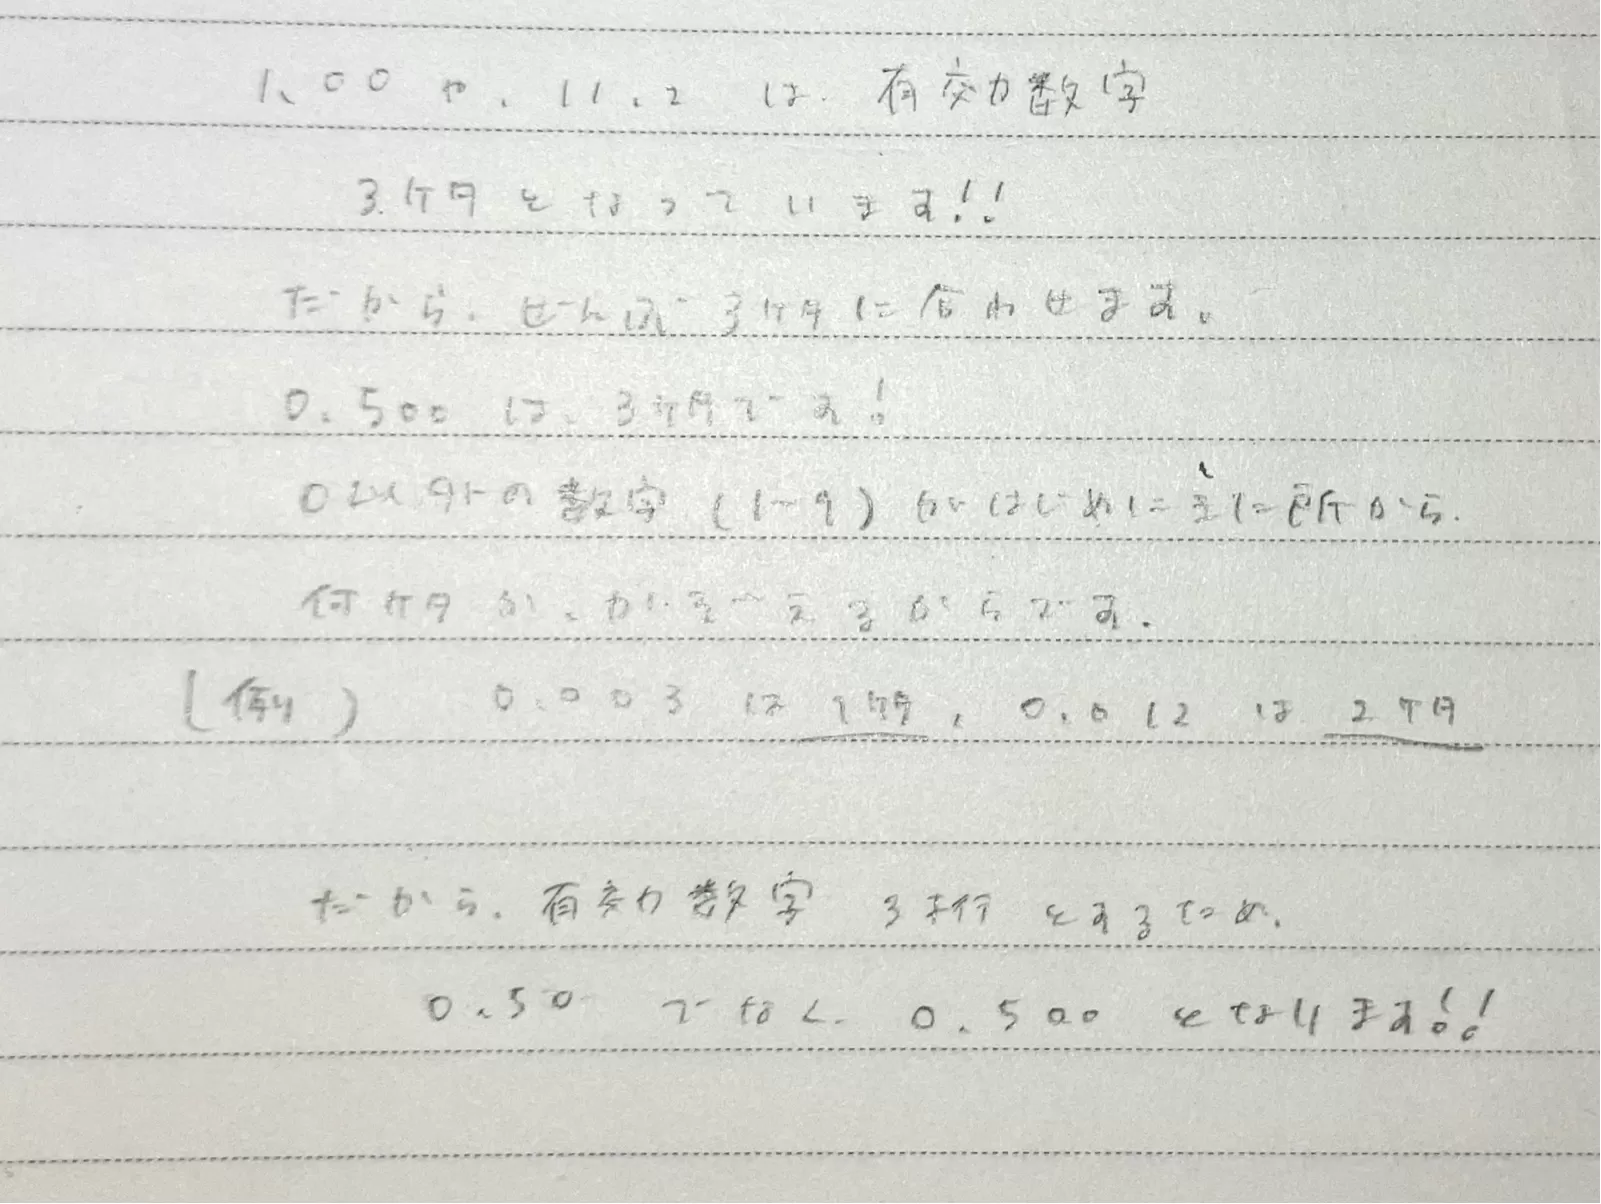 1.00や、11.2は、有効数字
3ケタとなっています!!
だから、ぜんぶ3ケタに合わせます。
0.500は、3ケタです!
0以外の数字(1~9)がはじめにきた所から、
何ケタか、かぞえるからです。
(例) 0.003は1ケタ、0.012は2ケタ
だから、有効数字3桁とするため、
0.50でなく、0.500となります!!